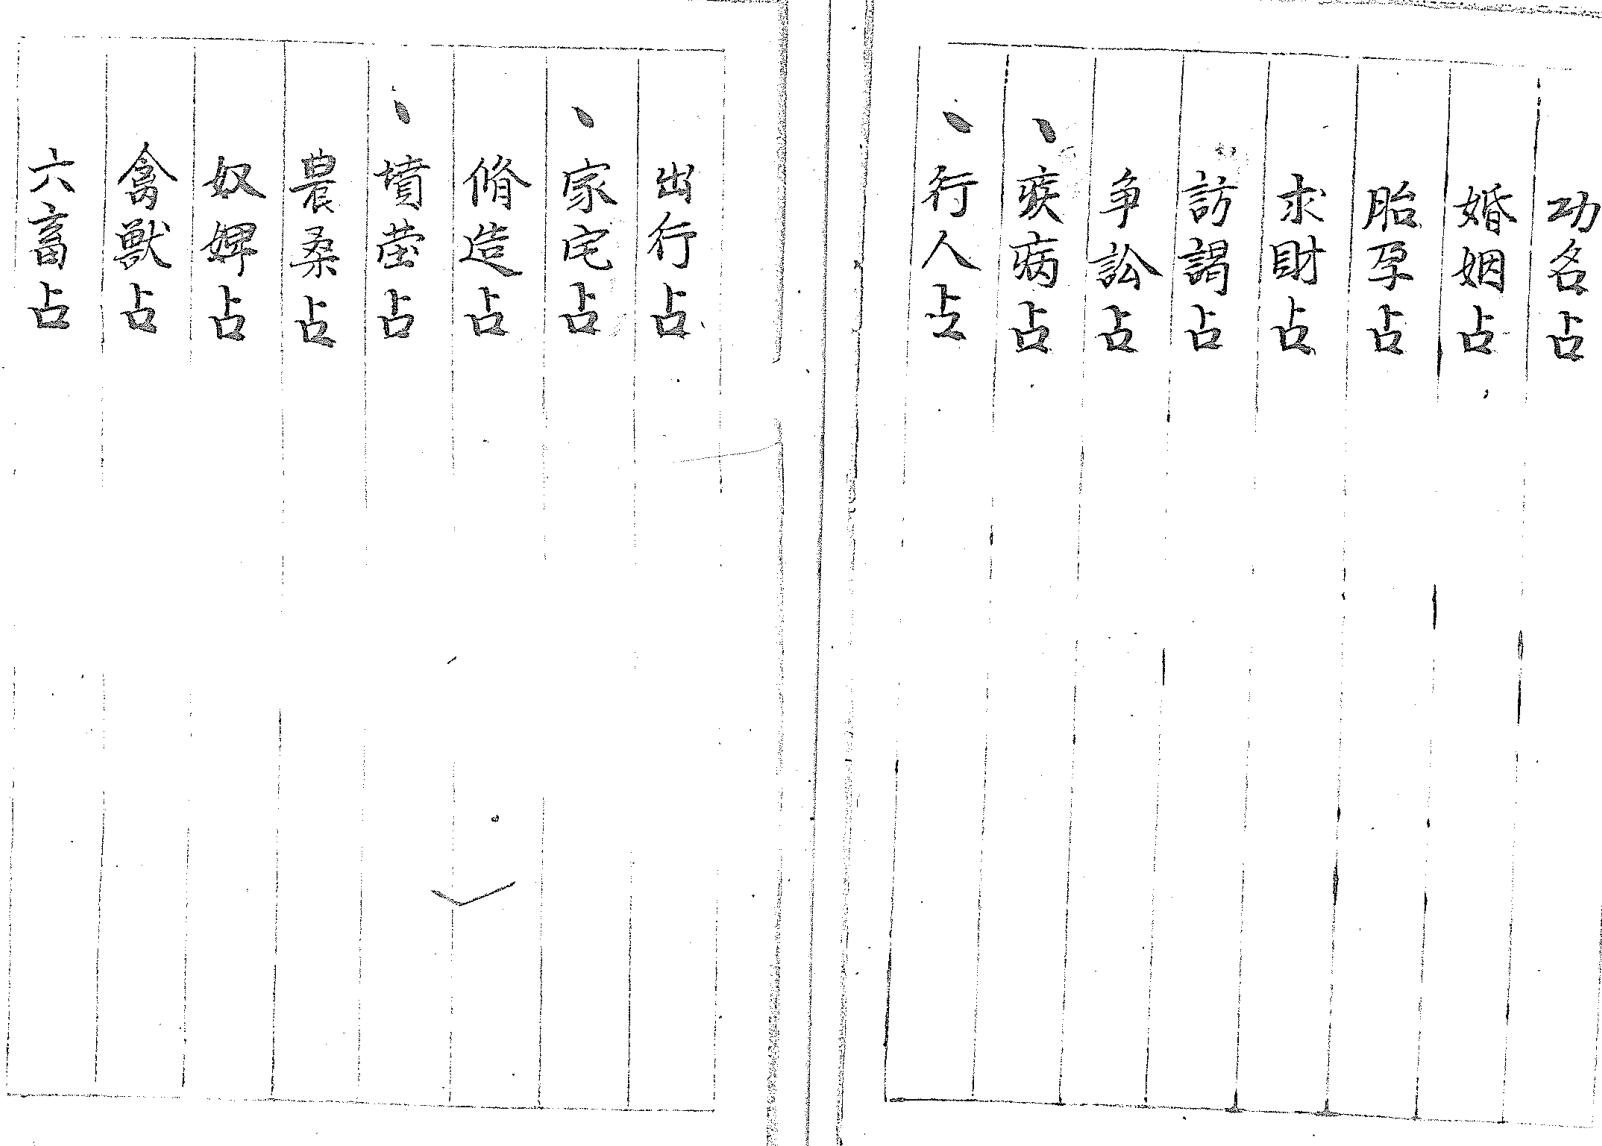 功名占
婚姻占
胎孕占
求財占
訪謁占
争訟占
疾病占
行人占
出行占
家宅占
脩造占
墳茔占
農桑占
奴婢占
禽獸占
六畜占